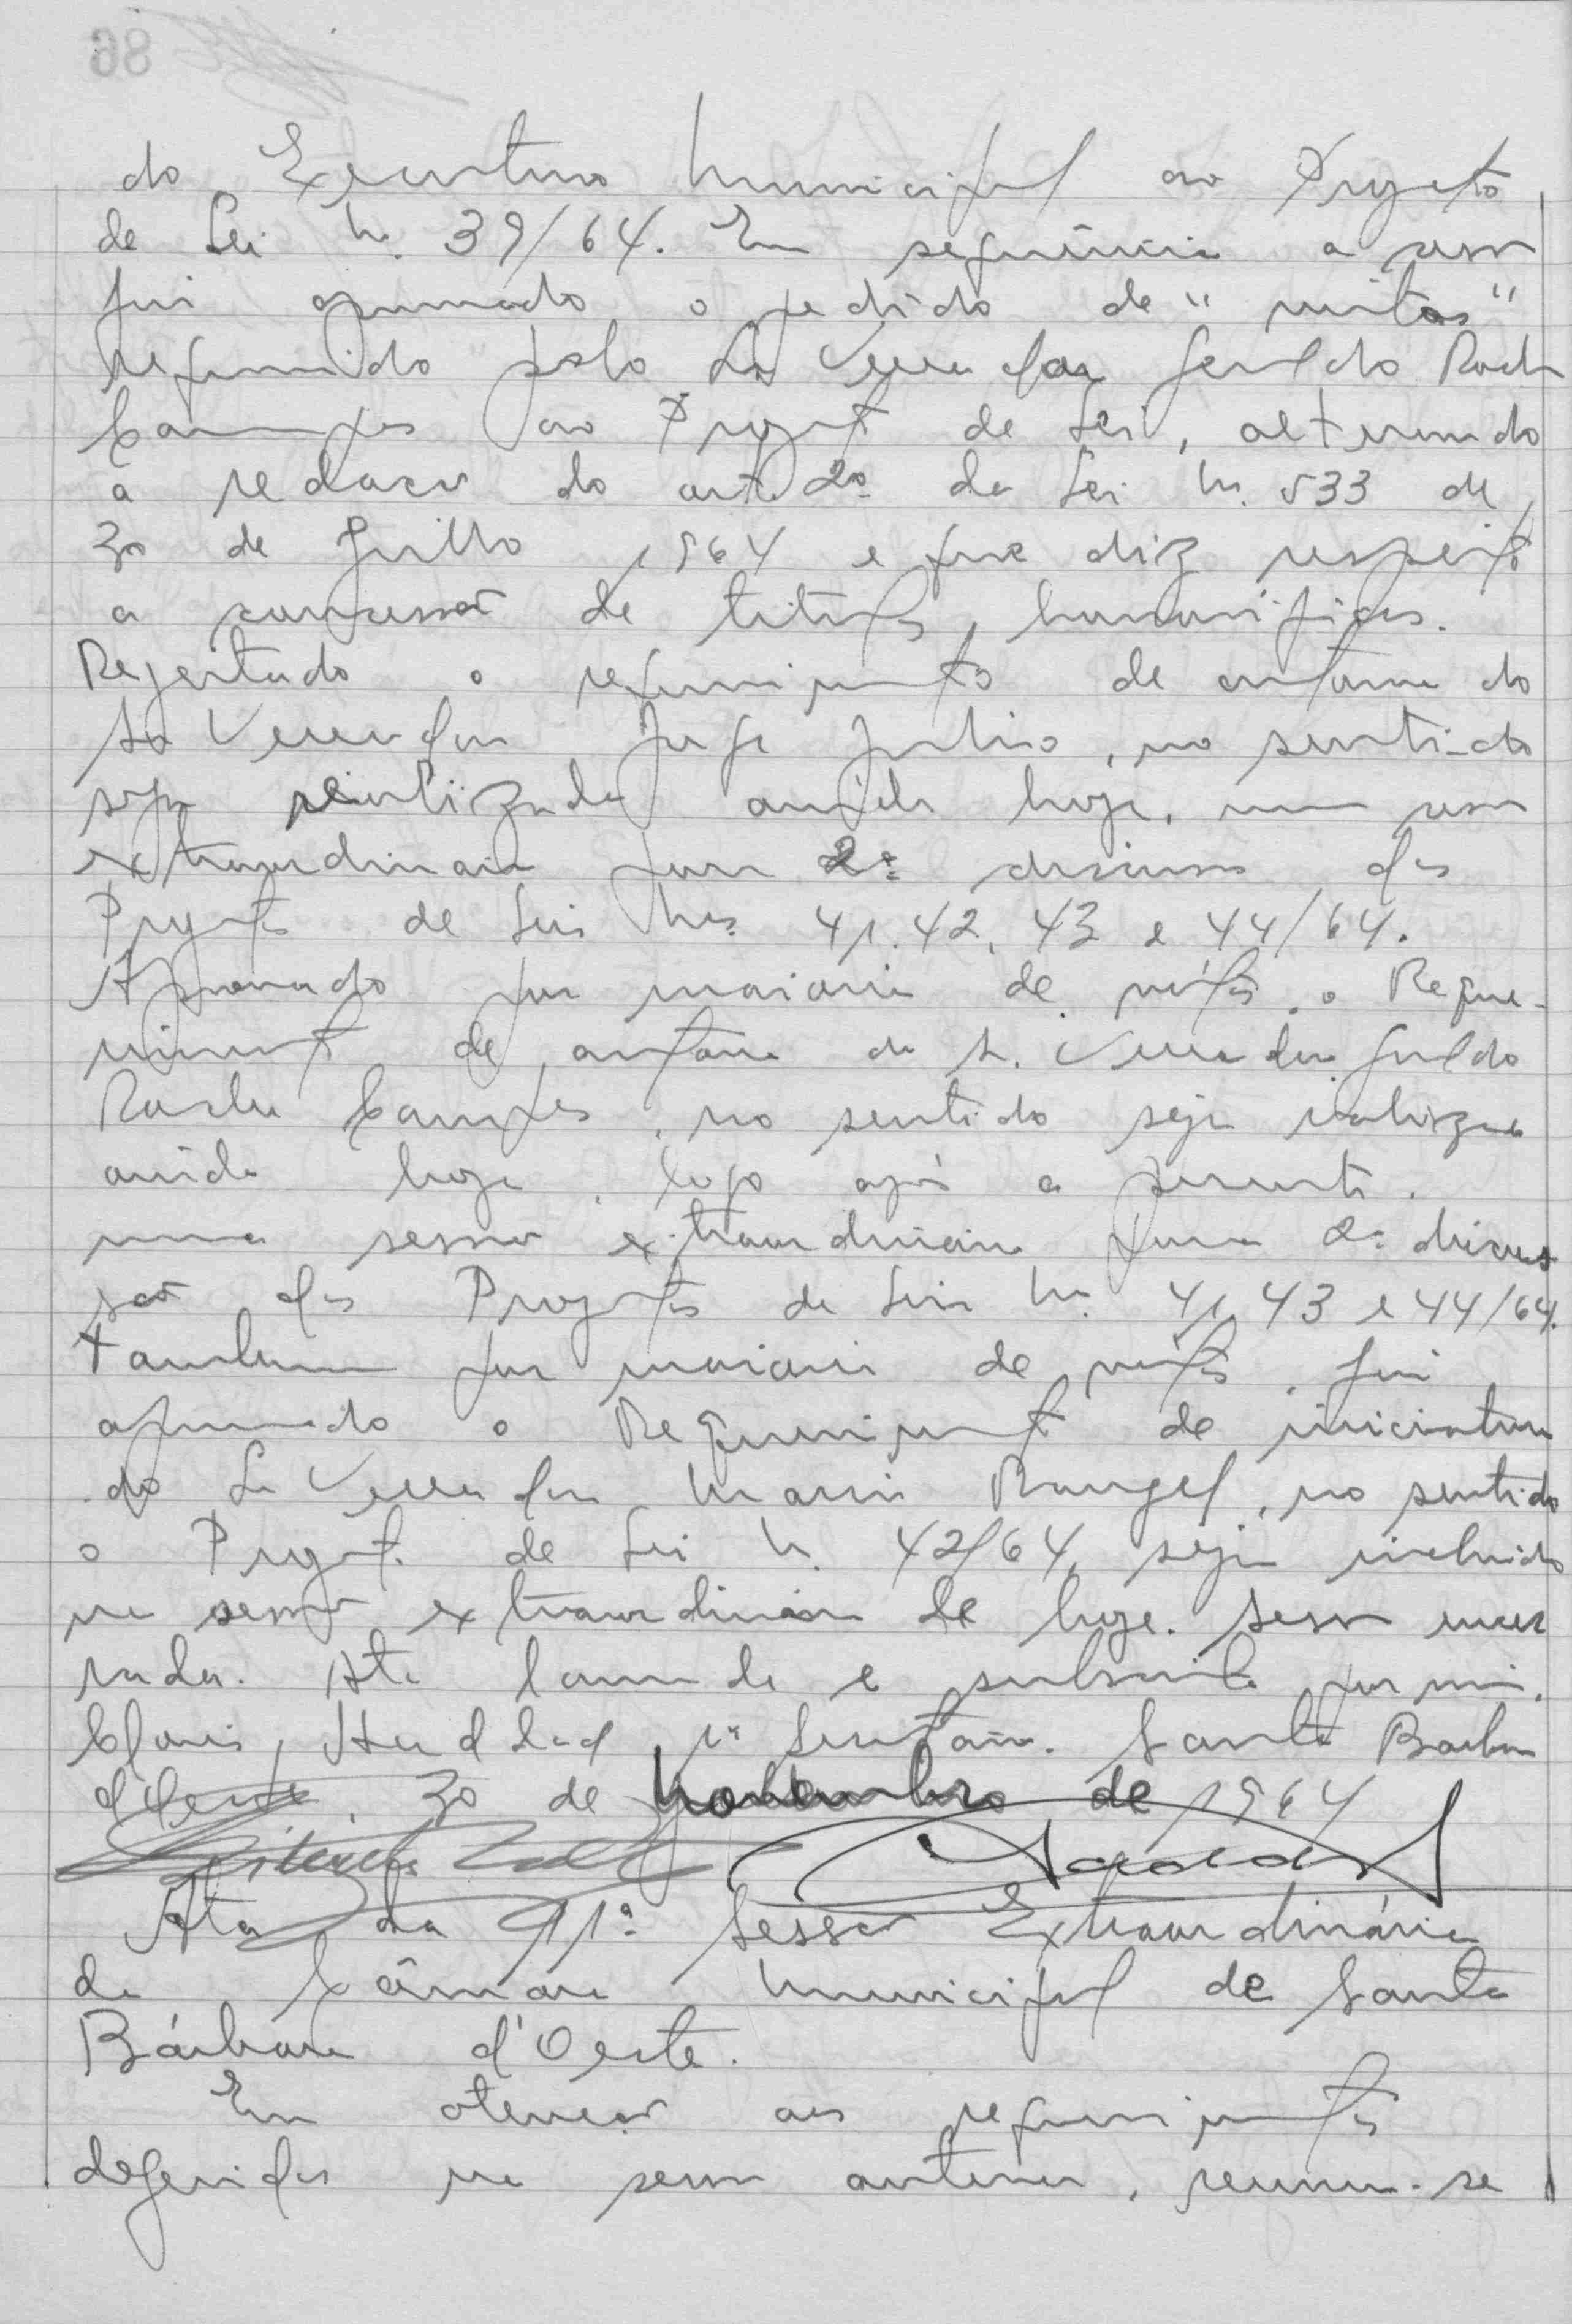 do Executivo Municipal ao Projeto
de Lei n. 39/64. Em sequência a sessão
foi aprovado o pedido de "vistas"
requerido pelo Sr. Vereador Geraldo Rocha
Campos ao Projeto de Lei, alterando
a redação do art. 2º da Lei n. 533 de
30 de Julho 1964 e que diz respeito
a concessão de titulos honorificos.
Rejeitado o requerimento de autoria do
Sr. Vereador Jorge, no sentido
seja realizada ainda hoje, uma sessão
extraordinaria para 2ª discussão dos
Projetos de Leis nes. 41, 42, 43 e 44/64.
Aprovado por maioria de votos, o Reque-
rimento de autoria do Sr. Vereador Geraldo
Rocha Campos, no sentido seja realizada
ainda hoje, logo após a presente,
uma sessão extraordinaria para 2ª discus
são dos Projetos de Leis n. 41, 43 e 44/64.
Tambem por maioria de votos, foi
aprovado o Requerimento de iniciativa
do Sr. Vereador Mario Rangel, no sentido
o Projeto de Lei n. 42/64, seja incluido
na sessão extraordinaria de hoje. Sessão encer
rada. Ata lavrada e subscrita por mim,
1º Secretario. Santa Barbara
d'Oeste, 30 de Novembro de 1964
Ata da 91ª Sessão Extraordinária
da Câmara Municipal de Santa
Bárbara d'Oeste.
Em atenção aos requerimentos
deferidos na sessão anterior, reuniu-se